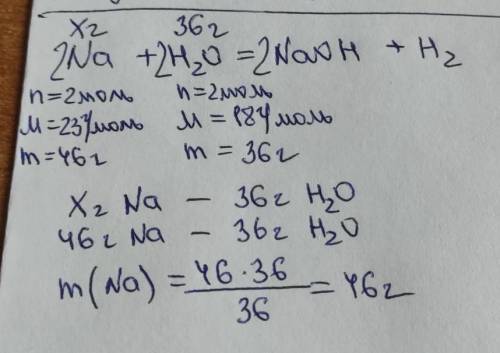 xг 36г
2Na + 2H₂O = 2NaOH + H₂
n=2моль n=2моль
M=23г/моль M=18г/моль
m=46г m=36г
xг Na – 36г H₂O
46г Na – 36г H₂O
m(Na) = 46·36/36 = 46г